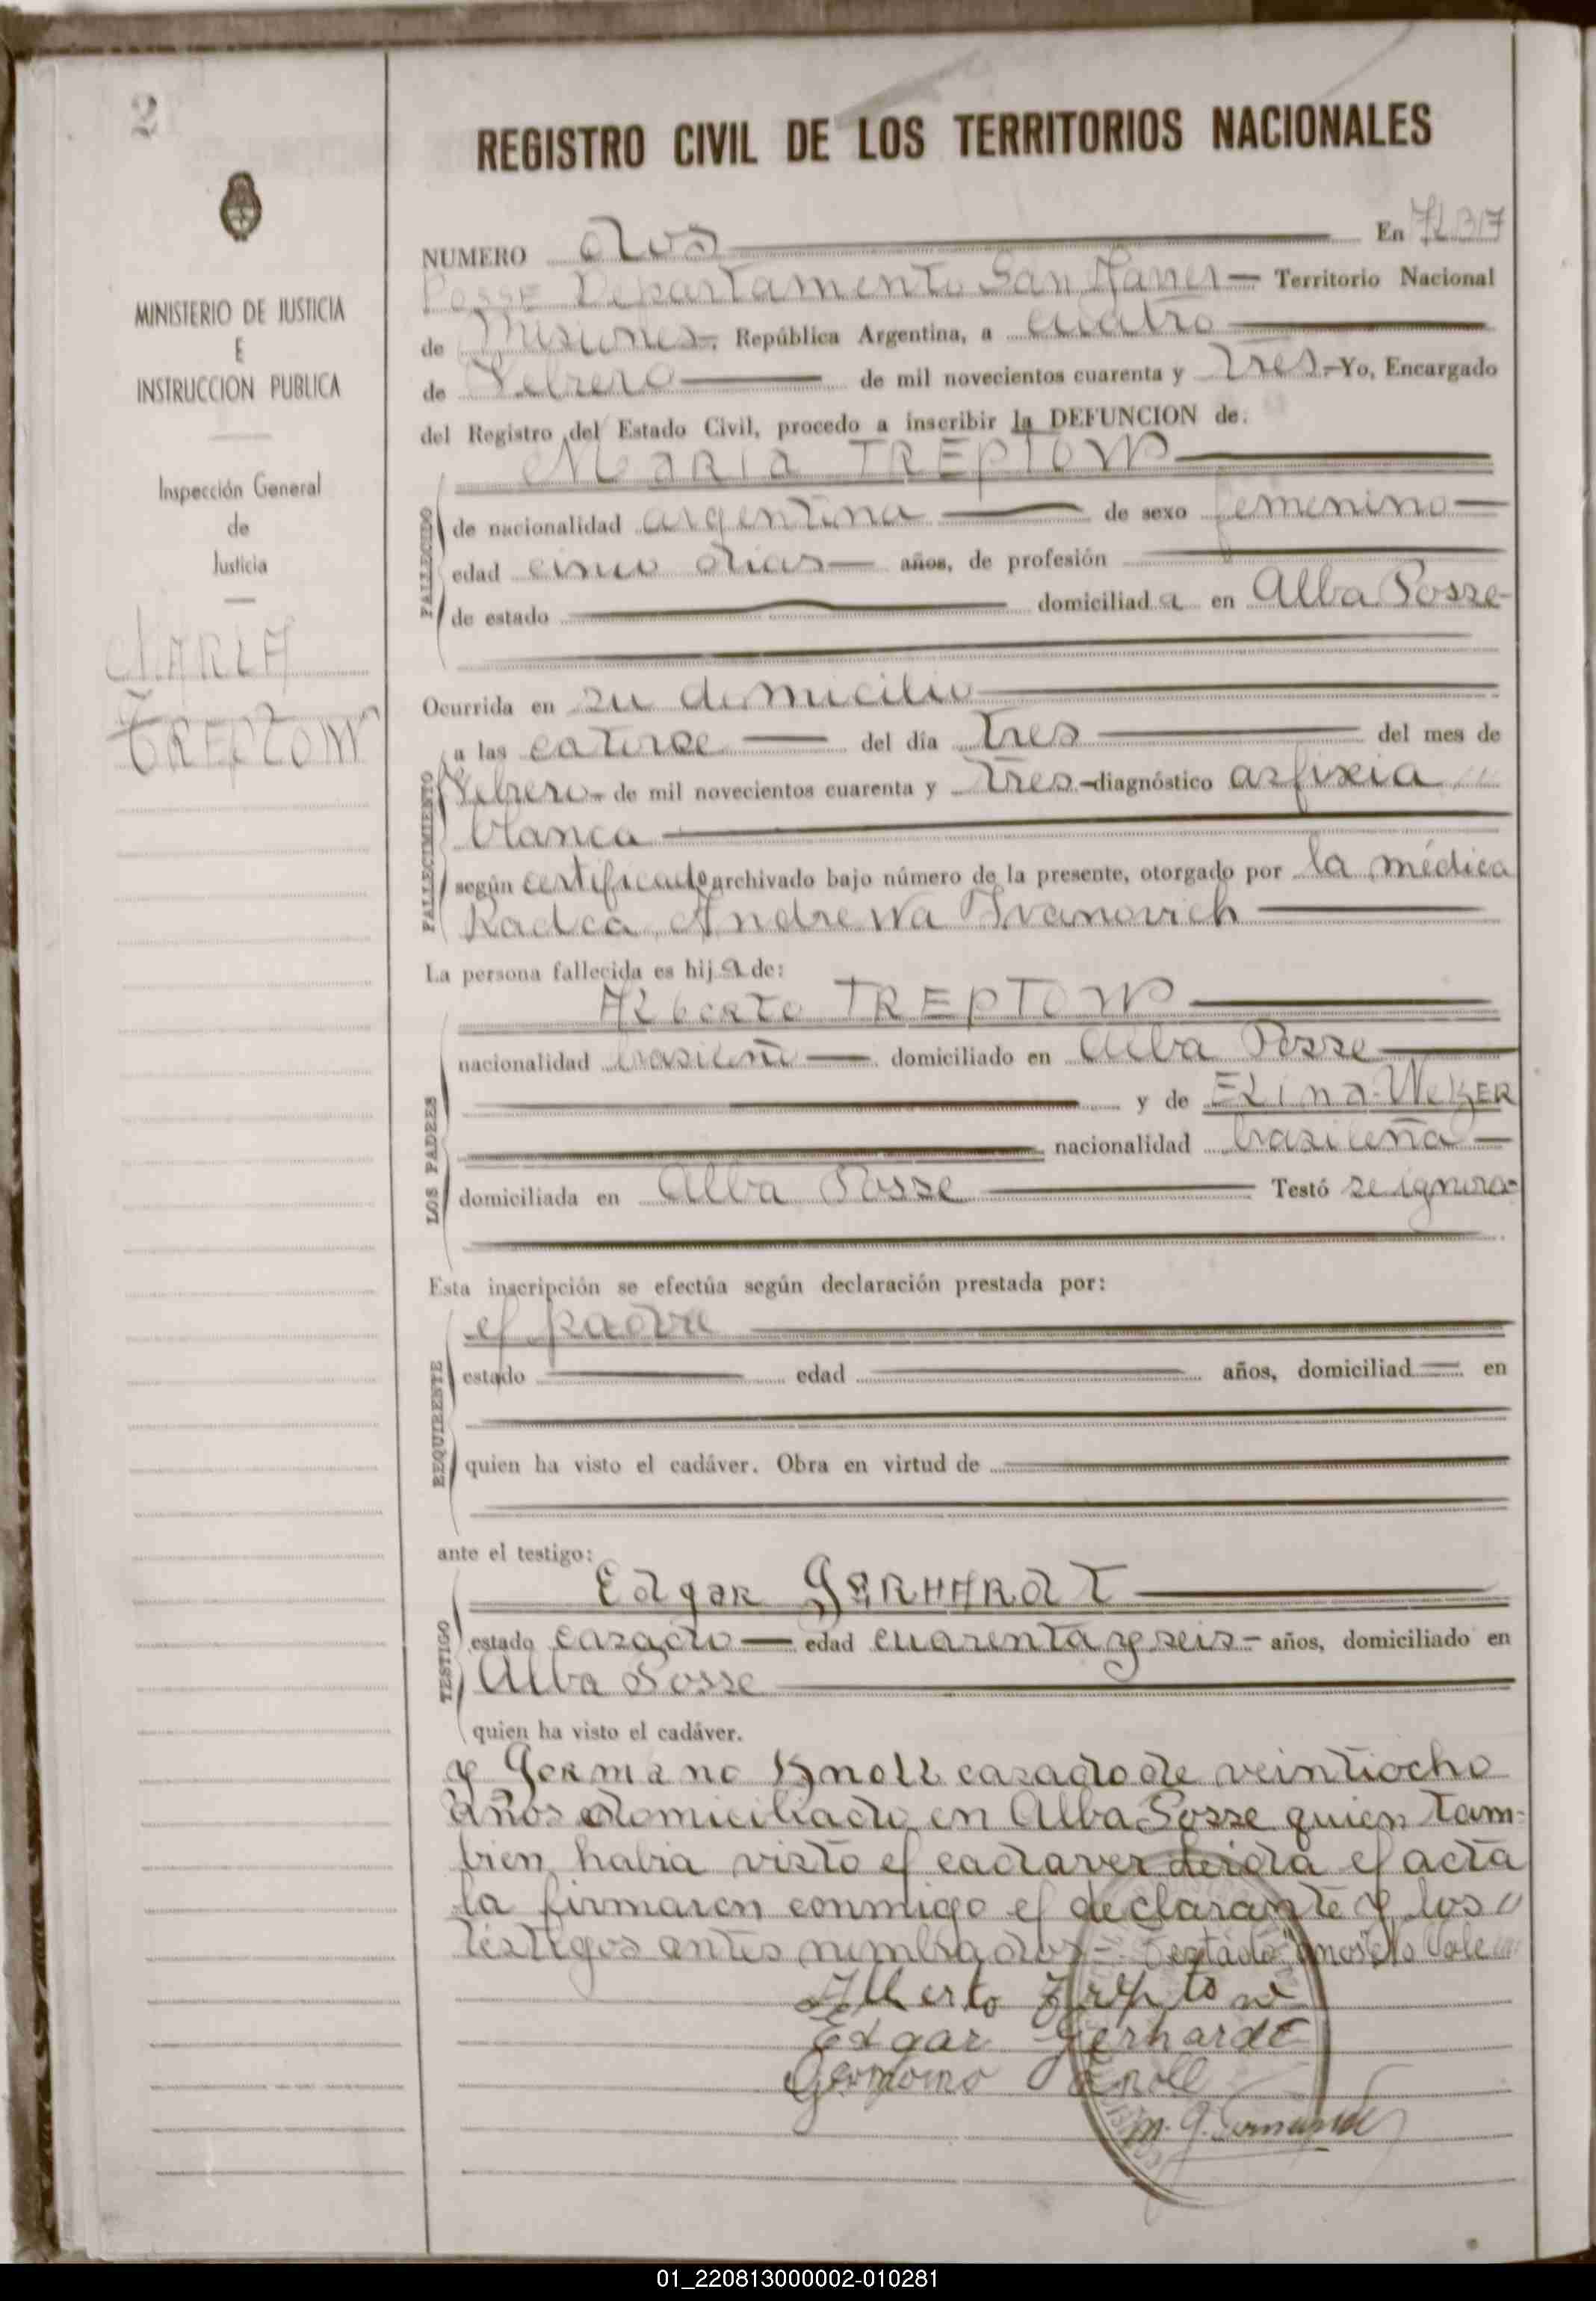 2
REGISTRO CIVIL DE LOS TERRITORIOS NACIONALES
MINISTERIO DE JUSTICIA
E
INSTRUCCION PUBLICA
Inspección General
de
Justicia
MARIA
TREPTOW
NUMERO dos En ALBA
Posse Departamento San Javier Territorio Nacional
de Misiones, República Argentina, a cuatro
de Febrero de mil novecientos cuarenta y tres.- Yo, Encargado
del Registro del Estado Civil, procedo a inscribir la DEFUNCION de:
FALLECIDO
Maria TREPTOW
de nacionalidad argentina de sexo femenino
edad cinco dias años, de profesión
de estado domiciliad a en Alba Posse
Ocurrida en su domicilio
FALLECIMIENTO
a las catorce del día tres del mes de
Febrero de mil novecientos cuarenta y tres diagnóstico asfixia
blanca
según certificado archivado bajo número de la presente, otorgado por la médica
Radca Andrewa Ivanovich
La persona fallecida es hij a de:
LOS PADRES
Alberto TREPTOW
nacionalidad brasileño domiciliado en Alba Posse
y de Elina WEBER
nacionalidad brasileña
domiciliada en Alba Posse Testó se ignora
Esta inscripción se efectúa según declaración prestada por:
REQUIRENTE
el padre
estado edad años, domiciliad en
quien ha visto el cadáver. Obra en virtud de
ante el testigo:
TESTIGO
Edgar GERHARDT
estado casado edad cuarenta y seis años, domiciliado en
Alba Posse
quien ha visto el cadáver.
y Germano Knoll casado de veintiocho
años domiciliado en Alba Posse quien tam-
bien habia visto el cadaver leida el acta
la firmaron conmigo el declarante y los
testigos antes nombrados Testado "años" No Vale
Alberto Treptow
Edgar Gerhardt
Germano Knoll
01_220813000002-010281